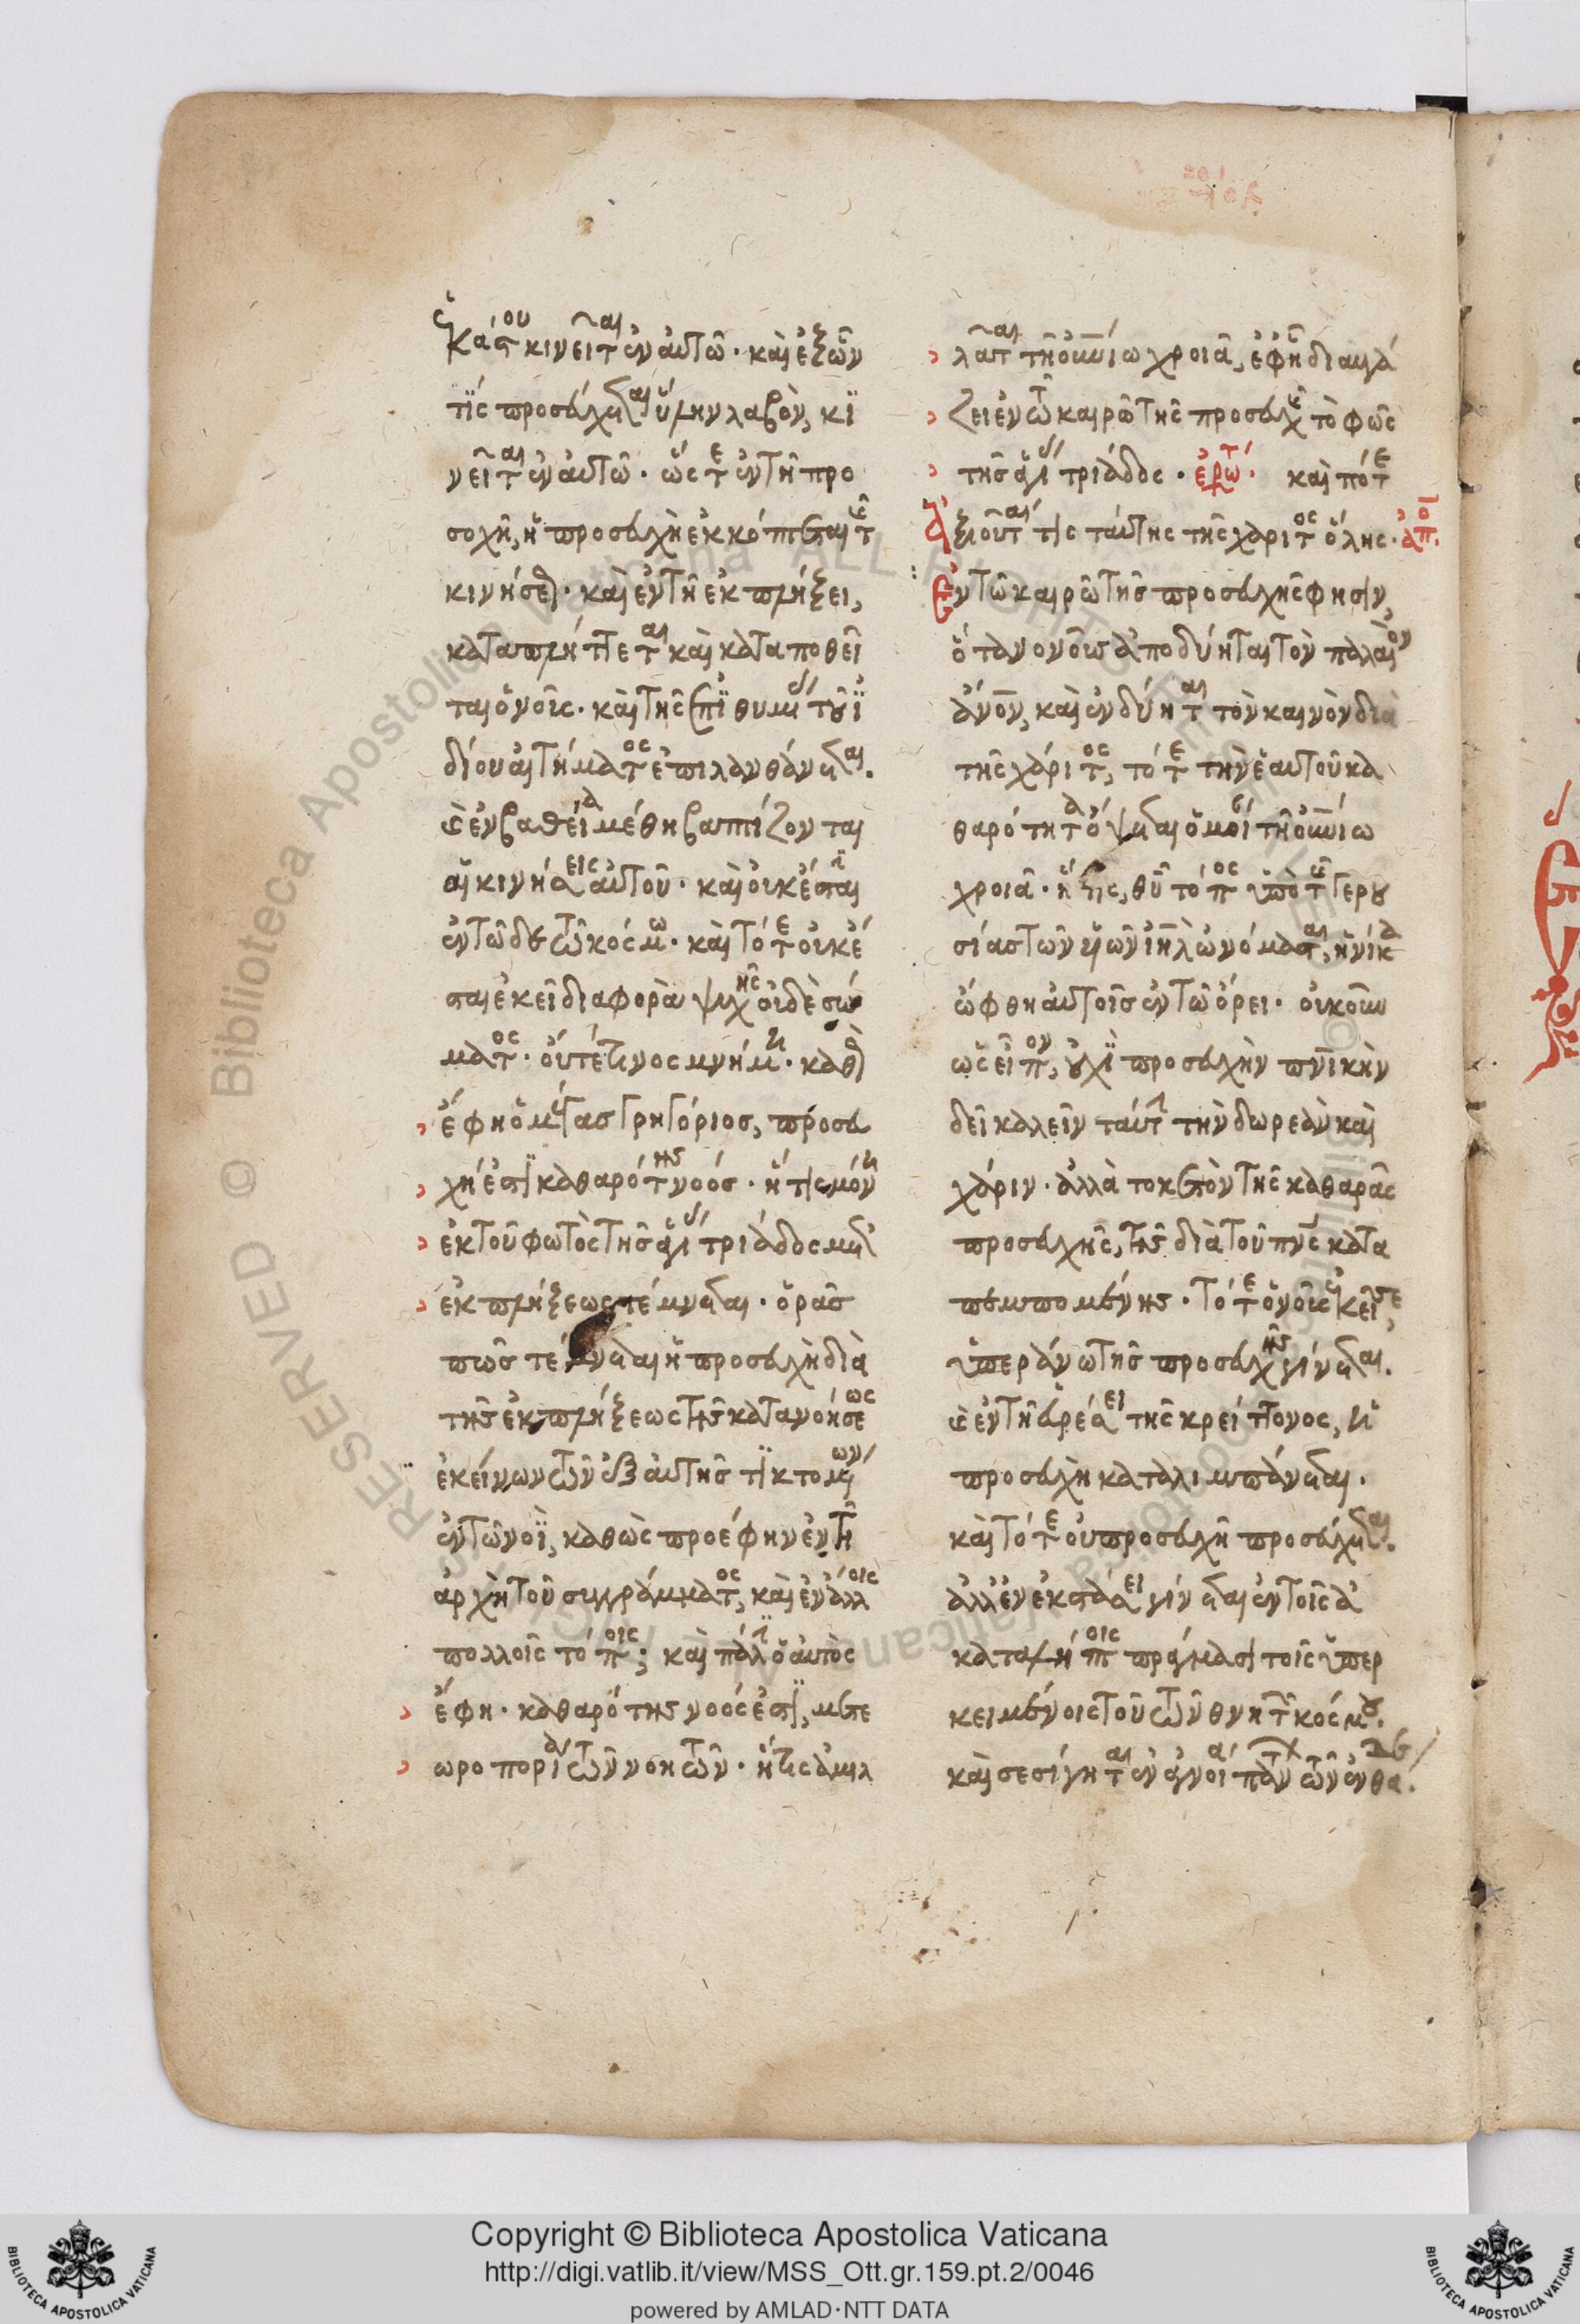 ἑκάστου κινεῖται ἐν αὐτῶ · καὶ ἐξ ὧν
τίς προσεύχεται ὕλην λαβὸν, κι
νεῖται ἐν αὐτῶ · ὥστε ἐν τῆ προ
σοχῆ, ἡ προσευχὴ ἐκκόπτεται τῶν
κινήσεων · καὶ ἐν τῆ ἐκπλήξει,
καταπλήττεται καὶ καταποθεῖ
ται ὁ νοῦς · καὶ τῆς ἐπιθυμίας τοῦ ἰ
δίου αἰτήματος ἐπιλανθάνεται.
καὶ ἐν βαθεία μέθη βαπτίζονται
αἱ κινήσεις αὐτοῦ · καὶ οὐκ ἔστιν
ἐν τῶδε τῶ κόσμω · καὶ τότε οὐκ ἔ
σται ἐκεῖ διαφορὰ ψυχῆς οὐδὲ σώ
ματος · οὔτέ τινος μνήμη · καθὼς
ἔφη ὁ μέγας Γρηγόριος, προσευ
χή ἐστι καθαρότης νοός · ἥτις μόνη
ἐκ τοῦ φωτὸς τῆς ἁγίας τριάδος μετ᾽
ἐκπλήξεως τέμνεται · ὁρᾶς
πῶς τέμνεται ἡ προσευχὴ διὰ
τῆς ἐκπλήξεως τῆς κατανοήσεως
ἐκείνων τῶν ἐξ αὐτῆς τικτομένων
ἐν τῶ νοῒ, καθὼς προέφην ἐν τῆ
ἀρχῆ τοῦ συγγράμματος, καὶ ἐν ἄλλοις
πολλοῖς τόποις ; καὶ πάλιν ὁ αὐτὸς
ἔφη · καθαρότης νοός ἐστι, μετε
ωροπορία τῶν νοητῶν · ἥτις ἀμιλ
λᾶται τῆ οὐρανίω χροιᾶ, ἐφ᾽ ἧς διαυγά
ζει ἐν τῶ καιρῶ τῆς προσευχῆς τὸ φῶς
τῆς ἁγίας τριάδος · ἐρώτ · καὶ πότε
ἀξιοῦταί τις ταύτης τῆς χάριτος ὅλης · ἀπόι.
Ἐν τῶ καιρῶ τῆς προσευχῆς φησὶν,
ὅταν ὁ νοῦς ἀποδύηται τὸν παλαιὸν
ἄνον, καὶ ἐνδύηται τὸν καινὸν διὰ
τῆς χάριτος, τότε τὴν ἑαυτοῦ κα
θαρότητα ὄψεται ὁμοίαν τῆ οὐνίω
χροιᾶ · ἥτις, θῦ τόπος ὑπὸ τῆς γερου
σίας τῶν υἱῶν ιηλ ὠνόμασται, ἡνίκα
ὤφθη αὐτοῖς ἐν τῶ ὄρει · οὐκοῦν
ὡς εἶπον, οὐχὶ προσευχὴν πνικὴν
δεῖ καλεῖν ταύτην τὴν δωρεὰν καὶ
χάριν · ἀλλὰ τοκετὸν τῆς καθαρᾶς
προσευχῆς, τῆς διὰ τοῦ πνς κατα
πεμπομένης · τότε ὁ νοῦς ἐκεῖσε,
ὑπεράνω τῆς προσευχῆς γίνεται.
καὶ ἐν τῆ εὑρέσει τῆς κρείττονος, ἡ
προσευχὴ καταλιμπάνεται.
καὶ τότε οὐ προσευχῆ προσεύχεται.
ἀλλ᾽ ἐν ἐκστάσει γίνεται ἐν τοῖς ἀ
καταλήπτοις πράγμασι τοῖς ὑπερ
κειμένοις τοῦ τῶν θνητῶν κόσμου.
καὶ σεσίγηται ἐν ἀγνοία πάντων τῶν ἐνθάδε.
Copyright © Biblioteca Apostolica Vaticana
http://digi.vatlib.it/view/MSS_Ott.gr.159.pt.2/0046
powered by AMLAD·NTT DATA